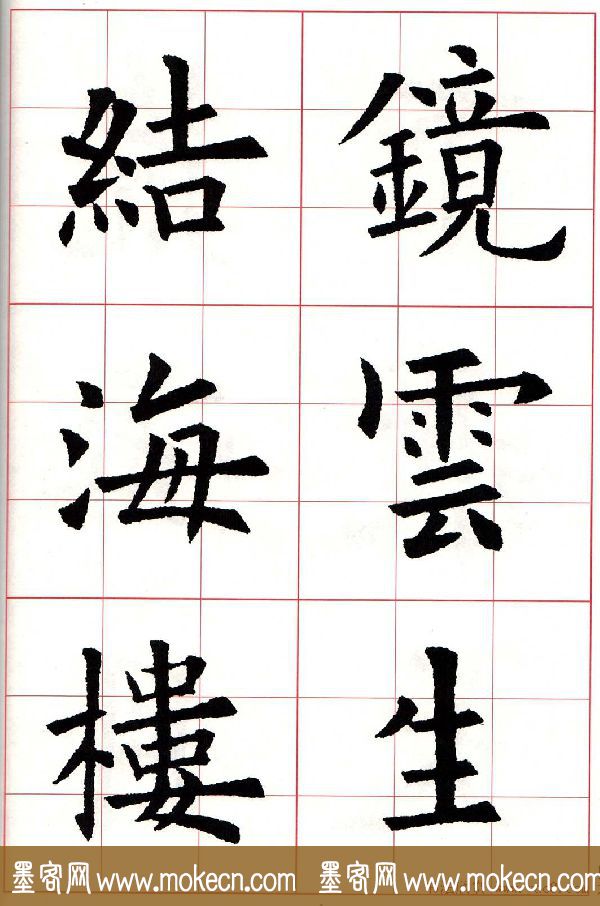 鏡雲生
結海樓
墨客网 www.mokecn.com 墨客网 www.mokecn.com